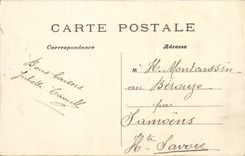 CARTE POSTALE
Correspondance
Adresse
Bons baisers
Juliette Camille
M H. Montcassin
au Bérouze
par
Samoëns
Hte Savoie